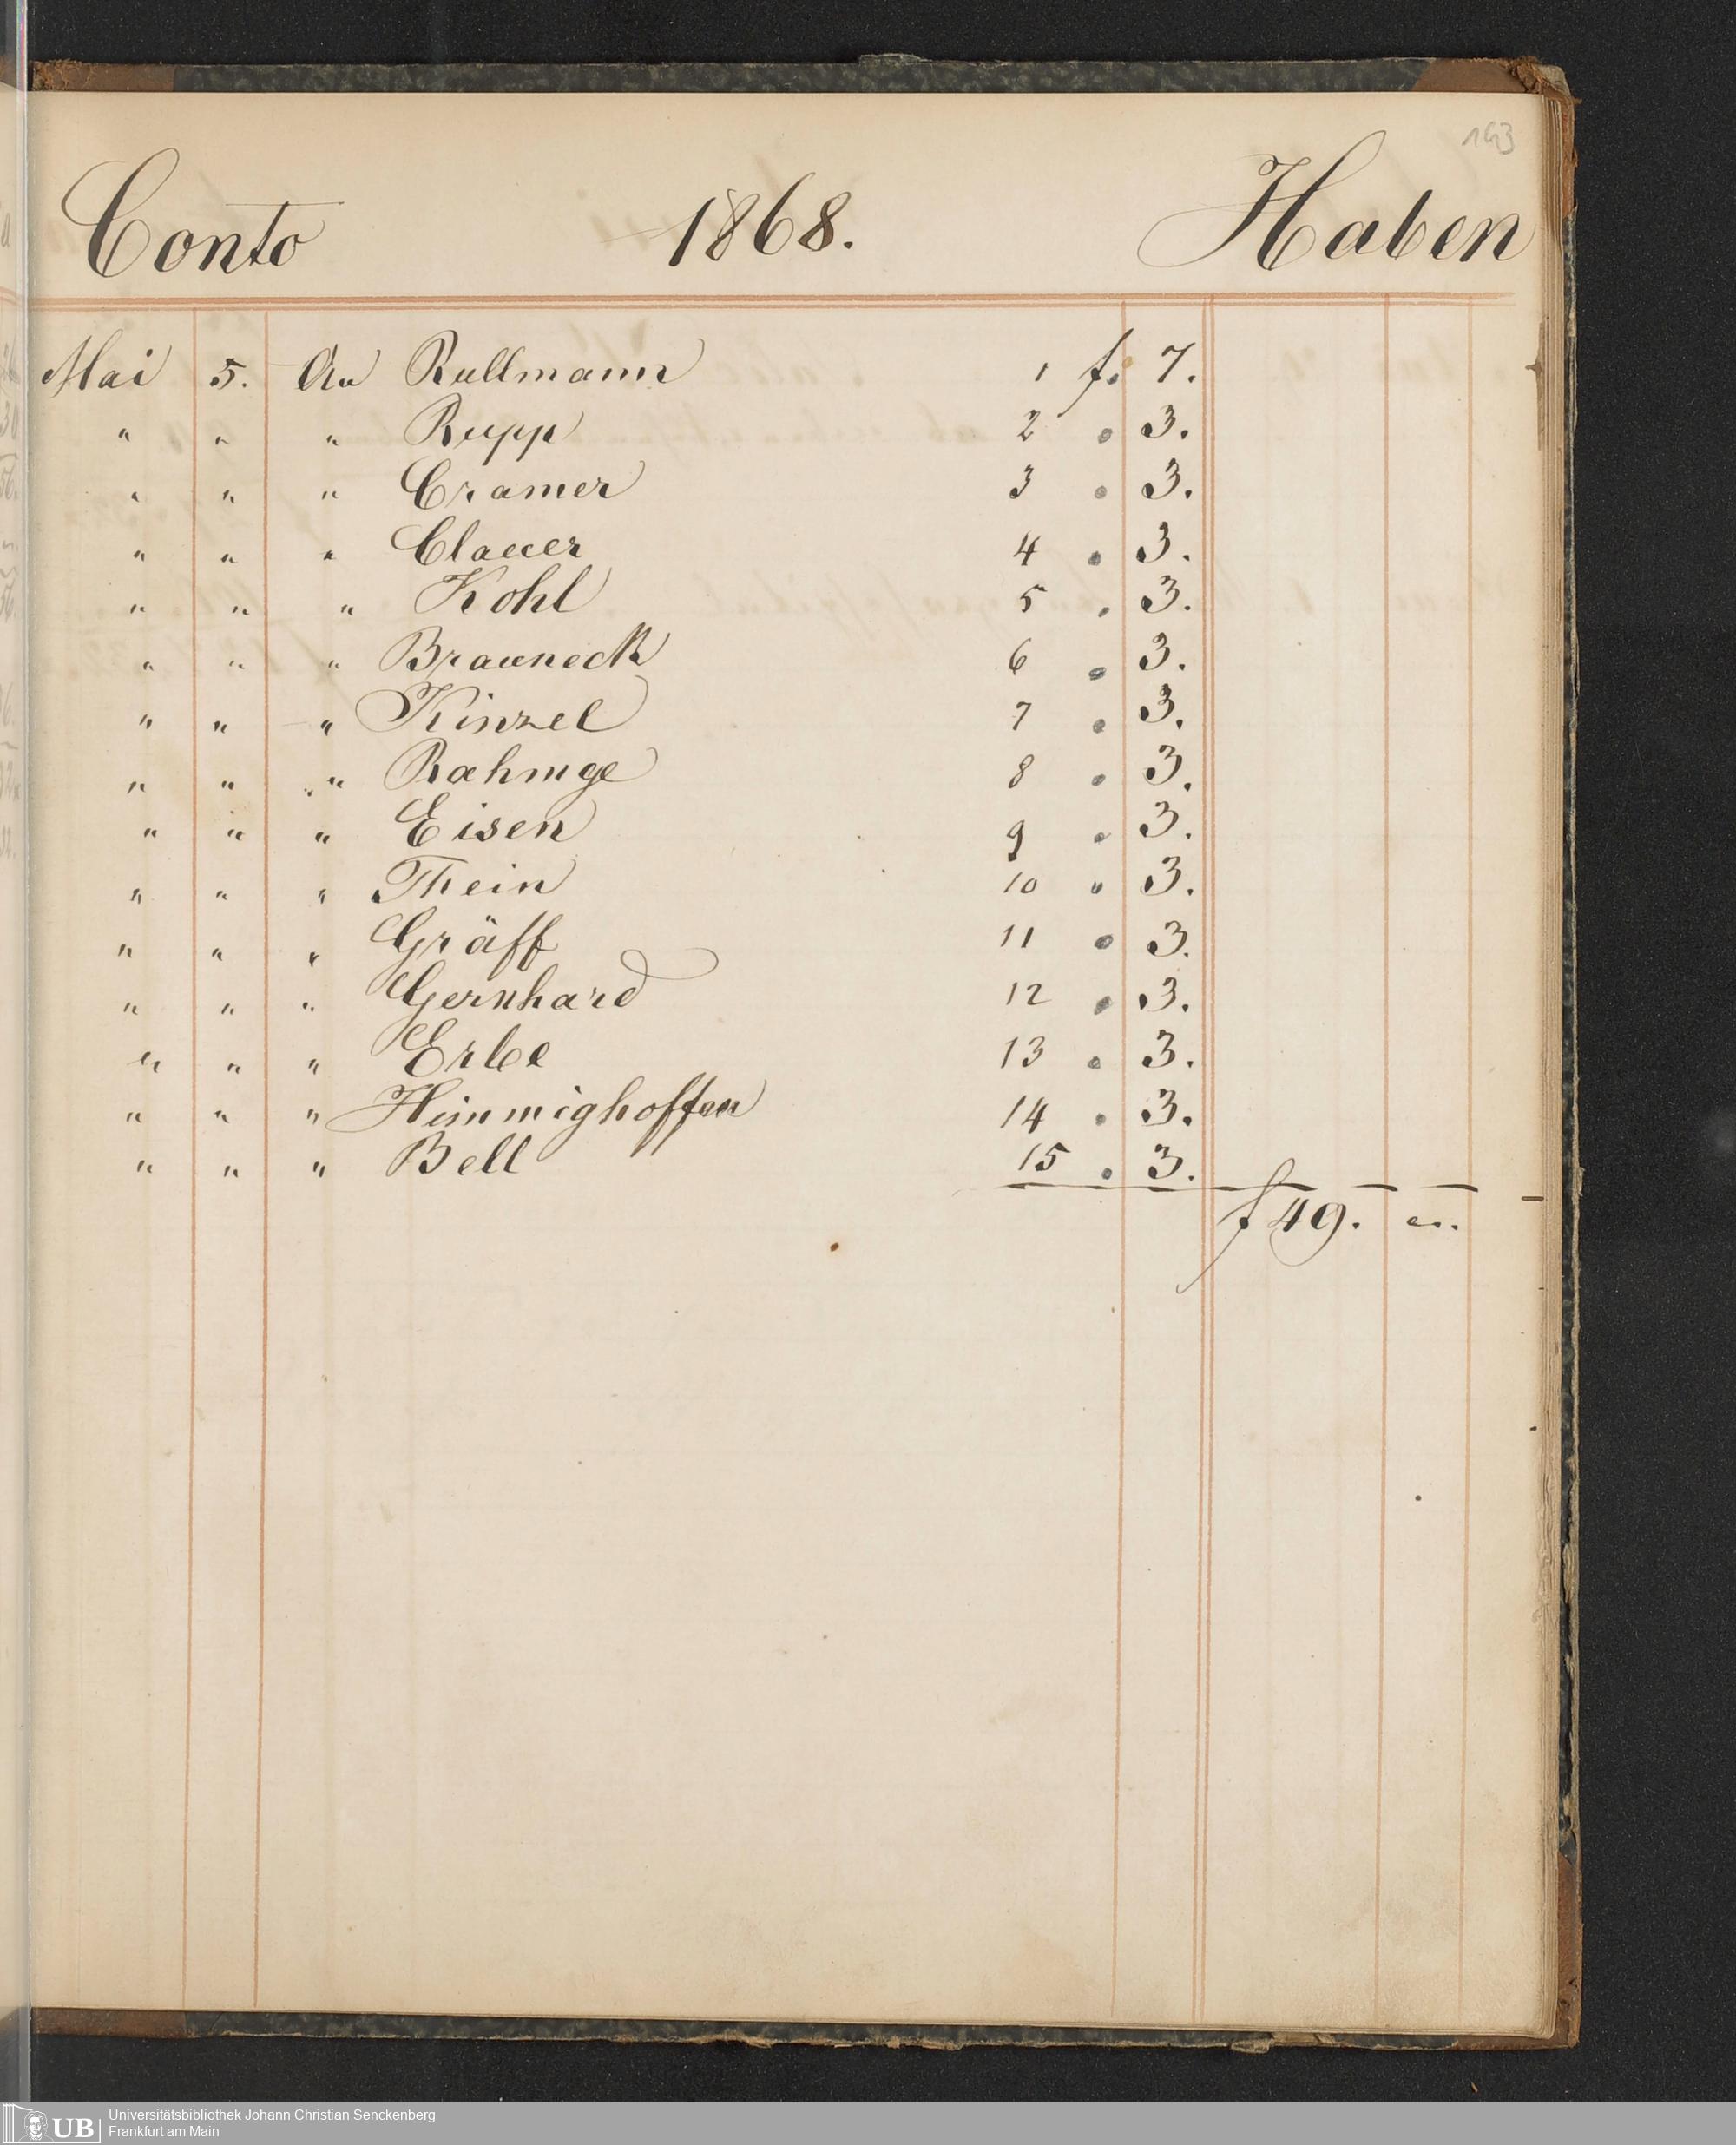 193
Conto 1868. Haben
Mai 5. An Rullmann 1 f. 7.
" " " Rupp 2 " 3.
" " " Cramer 3 " 3.
" " " Clauer 4 " 3.
" " " Kohl 5 " 3.
" " " Brauneck 6 " 3.
" " " Kinzel 7 " 3.
" " " Rahmge 8 " 3.
" " " Eisen 9 " 3.
" " " Thein 10 " 3.
" " " Gräff 11 " 3.
" " " Gernhard 12 " 3.
" " " Erbe 13 " 3.
" " " Himmighoffen 14 " 3.
" " " Bell 15 " 3.
f 49.
UB
Universitätsbibliothek Johann Christian Senckenberg
Frankfurt am Main